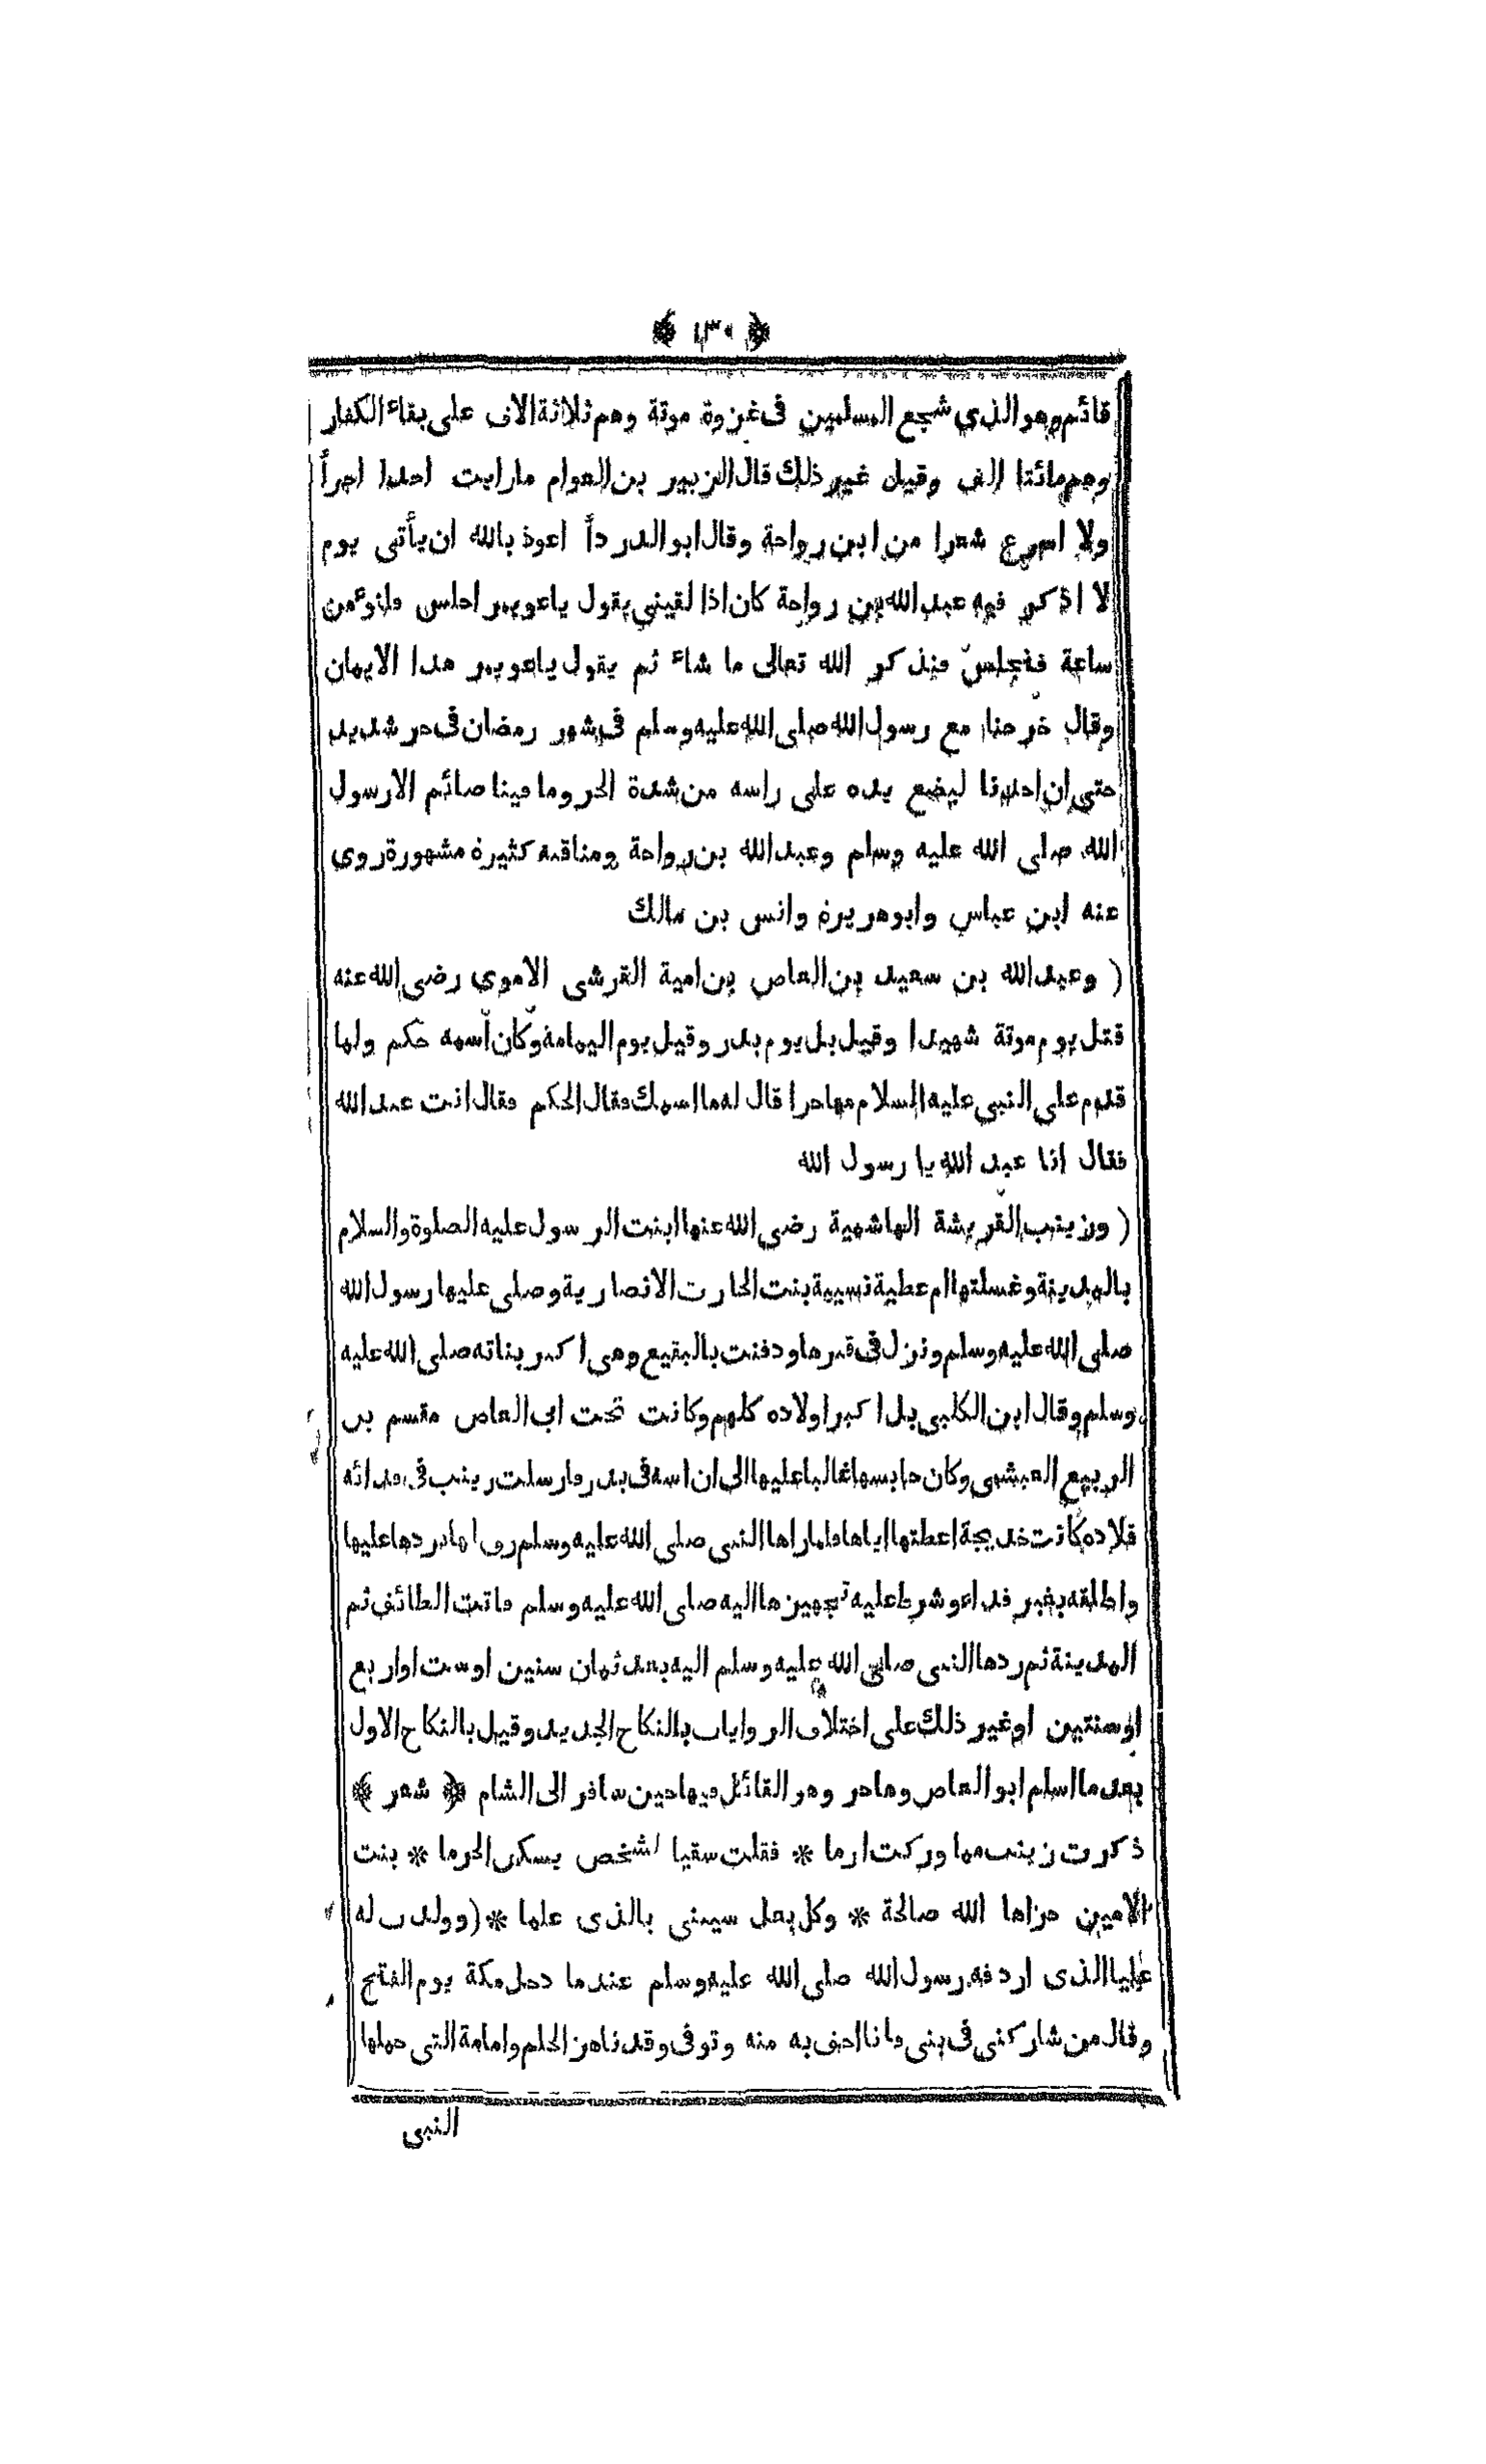 ﴿ ١٣٠ ﴾
قائم وهو الذي شجع المسلمين فى غزوة موتة وهم ثلاثة الاف على بقاء الكفار
وهم مائتا الف وقيل غير ذلك قال الزبير بن العوام ما رايت احدا اجرأ
ولا اسرع شعرا من ابن رواحة وقال ابو الدردأ اعوذ بالله ان يأتى يوم
لا اذكر فيه عبد الله بن رواحة كان اذا لقيني يقول يا عويمر اجلس فلنوءمن
ساعة فنجلس فنذكر الله تعالى ما شاء ثم يقول يا عويمر هذا الايمان
وقال خرجنا مع رسول الله صلى الله عليه وسلم فى شهر رمضان فى حر شديد
حتى ان احدنا ليضع يده على راسه من شدة الحر وما فينا صائم الا رسول
الله صلى الله عليه وسلم وعبد الله بن رواحة ومناقبه كثيرة مشهورة روي
عنه ابن عباس وابو هريرة وانس بن مالك
( وعبد الله بن سعيد بن العاص بن امية القرشى الاموي رضى الله عنه
قتل يوم موتة شهيدا وقيل بل يوم بدر وقيل يوم اليمامة وكان اسمه حكم ولما
قدم على النبى عليه السلام مهاجرا قال له ما اسمك فقال الحكم فقال انت عبد الله
فقال انا عبد الله يا رسول الله
( وزينب القريشة الهاشمية رضي الله عنها ابنت الرسول عليه الصلوة والسلام
بالمدينة وغسلتها ام عطية نسيبة بنت الحارت الانصارية وصلى عليها رسول الله
صلى الله عليه وسلم ونزل فى قبرها ودفنت بالبقيع وهى اكبر بناته صلى الله عليه
وسلم وقال ابن الكلبى بل اكبر اولاده كلهم وكانت تحت ابى العاص مقسم بن
الربيع العبشمى وكان حابسها غالبا عليها الى ان اسر فى بدر فارسلت زينب فى فدائه
قلاده كانت خديجة اعطتها اياها فلما راها النبى صلى الله عليه وسلم رق لها فردها عليها
واطلقه بغير فداء وشرط عليه تجهيزها اليه صلى الله عليه وسلم فاتت الطائف ثم
المدينة ثم ردها النبى صلى الله عليه وسلم اليه بعد ثمان سنين او ست او اربع
او سنتين او غير ذلك على اختلاف الروايات بالنكاح الجديد وقيل بالنكاح الاول
بعد ما اسلم ابو العاص وهاجر وهو القائل فيها حين سافر الى الشام ﴿ شعر ﴾
ذكرت زينب مما وركت ارما * فقلت سقيا لشخص يسكن الحرما * بنت
الامين جزاها الله صالحة * وكل بعل سيثنى بالذى علما * ( وولدت له
عليا الذى اردفه رسول الله صلى الله عليه وسلم عندما دخل مكة يوم الفتح
وقال من شاركنى فى بنى فانا احق به منه وتوفى وقد ناهز الحلم وامامة التى حملها
النبى